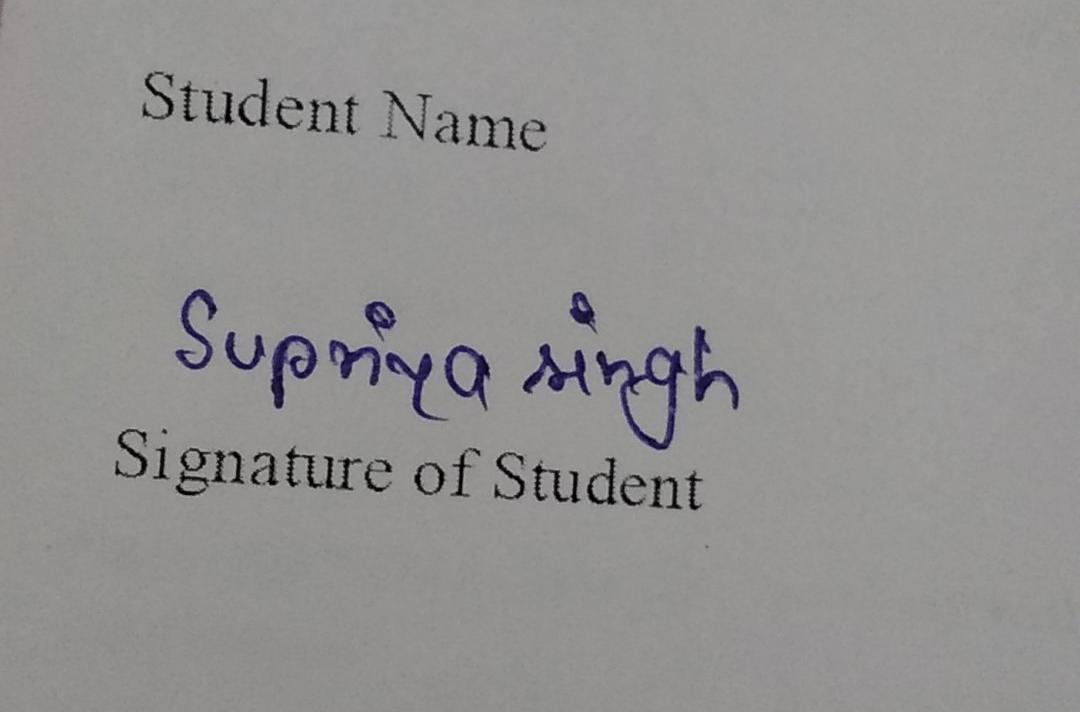 Student Name
Supriya singh
Signature of Student